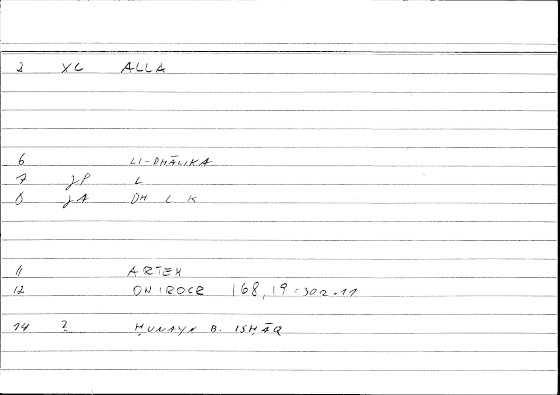 2 XL ALLA
6 LI-DHĀLIKA
7 JP L
8 JA DH L K
11 ARTEM
12 ONIROCR 168,19=302.11
14 2 ḤUNAYN B. ISḤĀQ